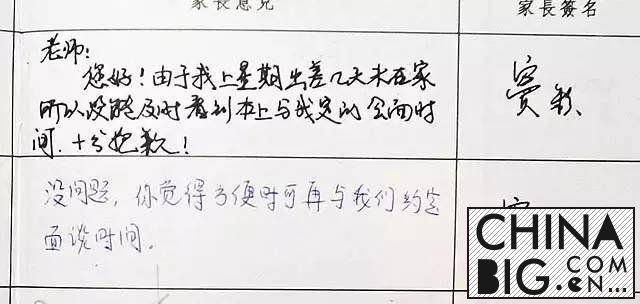 家長意見
家長簽名
老师：
您好！由于我上星期出差几天未在家
所以没能及时看到本上与我定的会面时
间.十分抱歉！
窦
没问题，你觉得方便时可再与我们约定
面谈时间。
CHINA
BIG.cn...